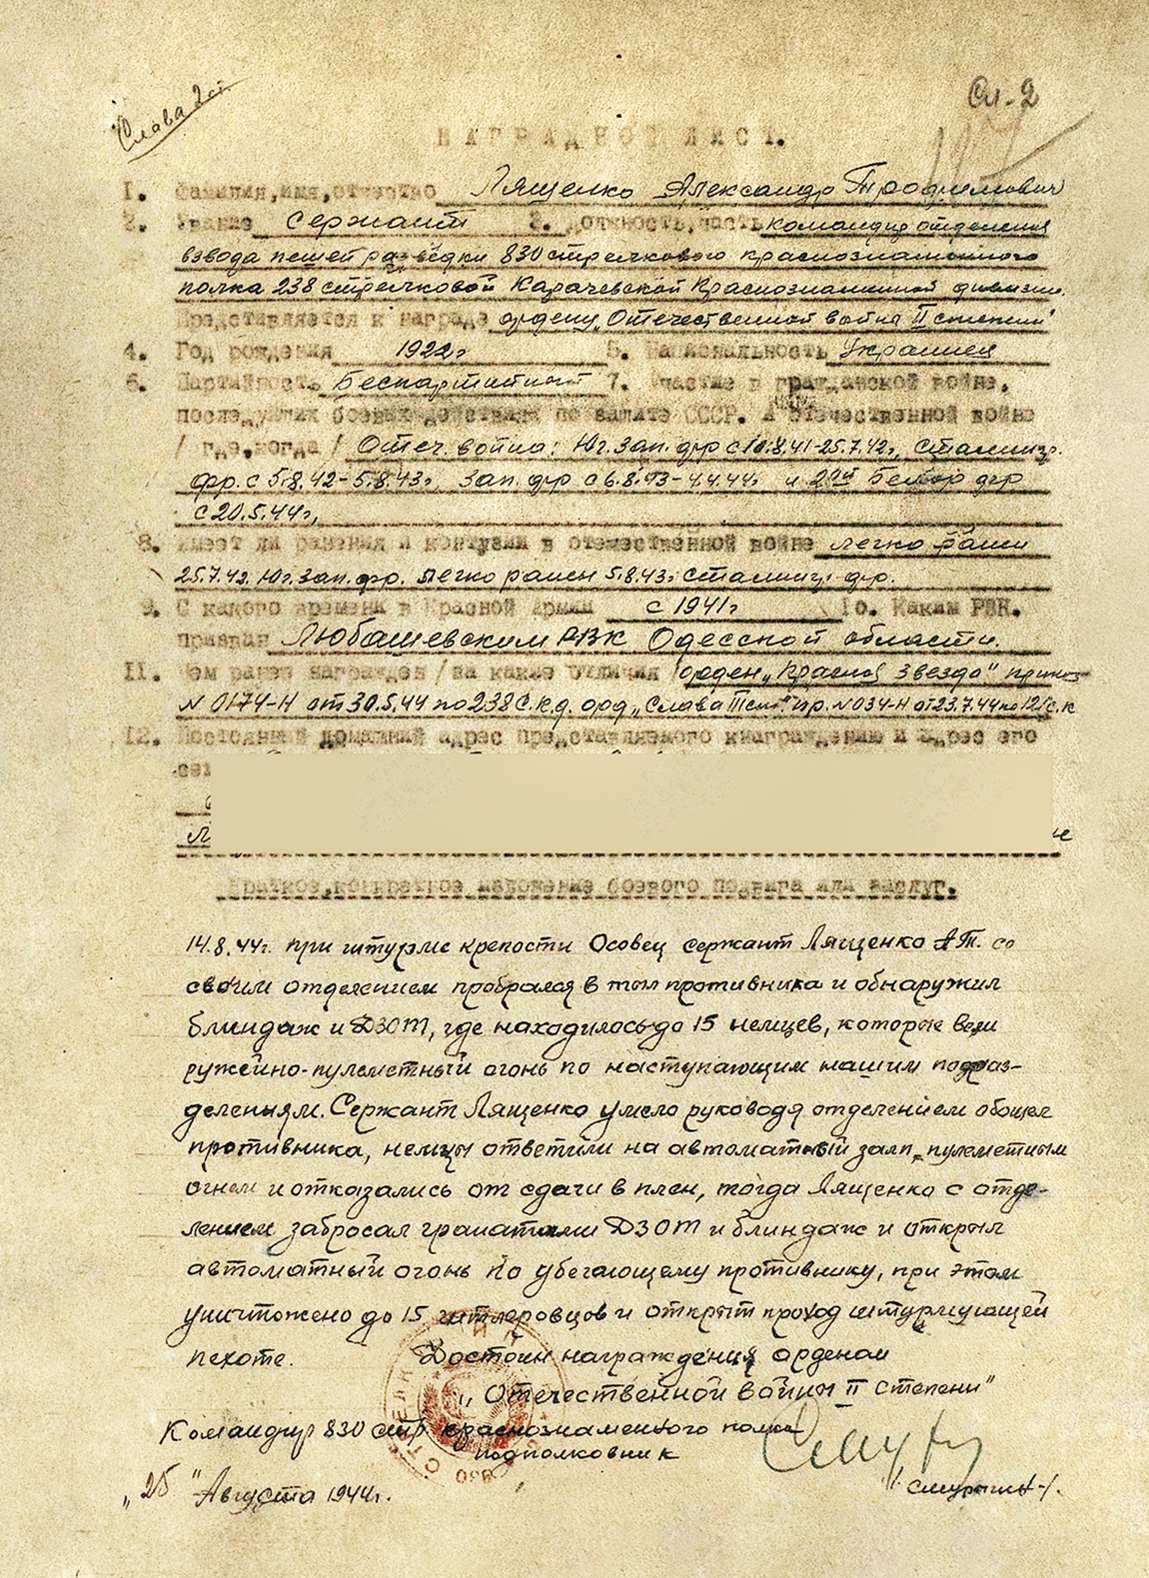 Слава 2 ст.
Сл-2
НАГРАДНОЙ ЛИСТ.
1. Фамилия,имя,отчество Лященко Александр Трофимович
2. Звание Сержант 3. Должность,часть командир отделения
взвода пешей разведки 830 стрелкового краснознаменного
полка 238 стрелковой Карачевской Краснознаменной дивизии.
Представляется к награде ордену „Отечественной война II степени"
4. Год рождения 1922г 5. Национальность Украинец
6. Партийность Беспартийный 7. Участие в гражданской войне,
последующих боевых действиях по защите СССР. и отечественной войне
/ где,когда / Отеч. война: Юг. Зап. фр с 10.8.41-25.7.42г, Сталингр.
фр. с 5.8.42-5.8.43г, Зап. фр с 6.8.43-4.4.44г и 2ой Белор фр
с 20.5.44г,
8. Имеет ли ранения и контузии в отечественной войне легко ранен
25.7.42. Юг. Зап. фр. Легко ранен 5.8.43г Сталингр. фр.
9. С какого времени в Красной армии с 1941г 10. Каким РВК.
призван Любашевским РВК Одесской области.
11. Чем ранее награжден /за какие отличия /орден „Красной Звезда" приказ
N 0174-Н от 30.5.44 по 238 С.К.д. орд „Слава III ст." Пр. N 034-Н от 23.7.44 по 121 С.К
12. Постоянный домашний адрес представляемого к награждению и адрес его
Краткое,конкретное изложение боевого подвига или заслуг.
14.8.44г. при штурме крепости Осовец сержант Лященко А Т. со
своим отделением пробрался в тыл противника и обнаружил
блиндаж и ДЗОТ, где находилось до 15 немцев, которые вели
ружейно-пулеметный огонь по наступающим нашим подраз-
делениям. Сержант Лященко умело руководя отделением обошел
противника, немцы ответили на автоматный залп, пулеметным
огнем и отказались от сдачи в плен, тогда Лященко с отде-
лением забросал гранатами ДЗОТ и блиндаж и открыл
автоматный огонь по убегающему противнику, при этом
уничтожено до 15 гитлеровцев и открыт проход штурмующей
пехоте. Достоин награждения орденом
„ Отечественной войны II степени"
Командир 830 стр. краснознаменного полка
подполковник
„ 25 " Августа 1944г.